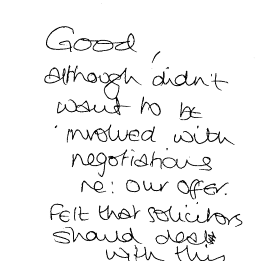 Good,
although didn't
want to be
involved with
negotiations
re: our offer.
Felt that solicitors
should deal
with this